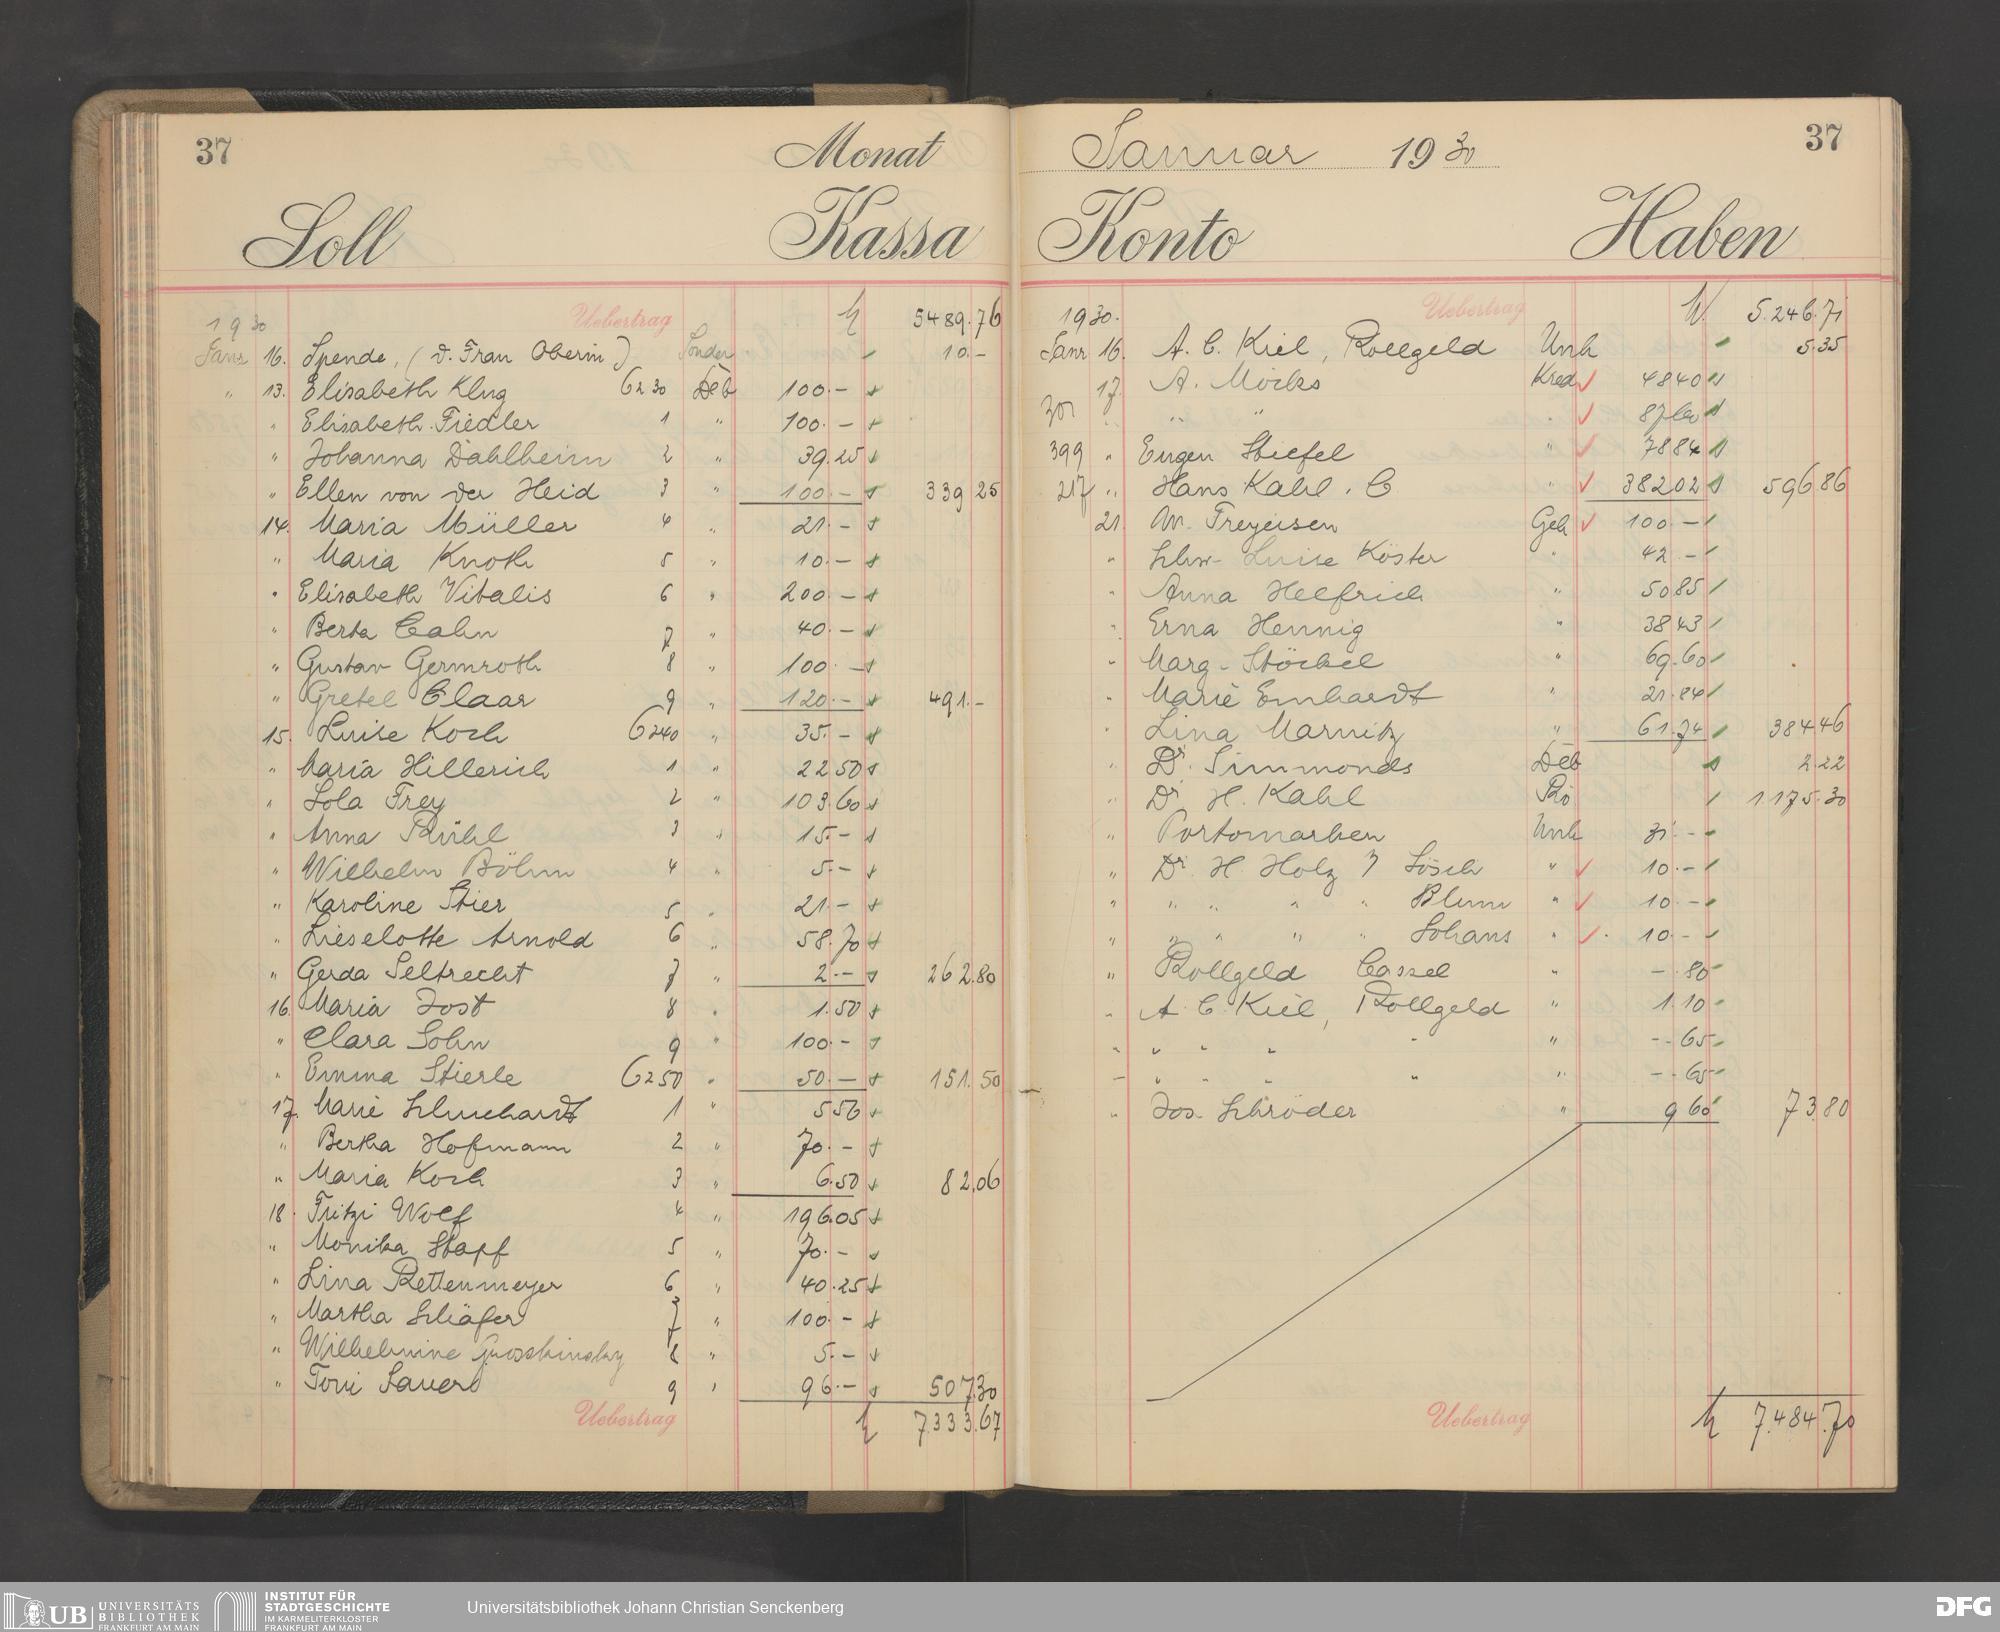 37 Monat
Soll Kassa
Uebertrag 5489.76
1930
Janr 16. Spende, (d. Frau Oberin) Sonder 10.-
" 13. Elisabeth Klug 6230 Deb 100.-
" Elisabeth Fiedler 1 " 100.-
" Johanna Dahlheim 2 " 39.25
" Ellen von der Heid 3 " 100.- 339 25
14. Maria Müller 4 " 21.-
" Maria Knoth 5 " 10.-
" Elisabeth Vitalis 6 " 200.-
" Berta Cahn 7 " 40.-
" Gustav Germroth 8 " 100.-
" Gretel Claar 9 " 120.- 491.-
15. Luise Koch 6240 " 35.-
" Maria Hillerich 1 " 22 50
" Lola Frey 2 " 103.60
" Anna Rühl 3 " 15.-
" Wilhelm Böhm 4 " 5.-
" Karoline Stier 5 " 21.-
" Lieselotte Arnold 6 " 58.70
" Gerda Seltrecht 7 " 2.- 262.80
16. Maria Jost 8 " 1.50
" Clara Sohn 9 " 100.-
" Emma Stierle 6250 " 50.- 151.50
17. Marie Schuchardt 1 " 5 56
" Bertha Hofmann 2 " 70.-
" Maria Koch 3 " 6.50 82.06
18. Fritzi Wolf 4 " 196.05
" Monika Stapf 5 " 70.-
" Lina Rettenmeyer 6 " 40.25
" Martha Schäfer 7 " 100.-
" Wilhelmine 8 " 5.-
" Toni Sauer 9 " 96.- 507.30
Uebertrag 7333.67
Januar 1930 37
Konto Haben
Uebertrag 5.246.71
1930.
Janr 16. A. C. Kiel, Rollgeld Unk 5.35
17. A. Möcks Kred 48 40
301 " " " " 87 60
399 " Eugen Stiefel " 78 84
217 " Hans Kahl. C " 382 02 596 86
21. M. Freyeisen Geh 100.-
" Schw. Luise Köster " 42.-
" Anna Helfrich " 50 85
" Erna Hennig " 38 43
" Marg. Stöckel " 69.60
" Marie Emhardt " 21.84
" Lina Marnitz " 61.74 384 46
" Dr. Simmonds Deb 2.22
" Dr. H. Kahl Rö 1.175.30
" Portomarken Unk 31.-
" Dr. H. Holz Lösch " 10.-
" " " " " Blum " 10.-
" " " " " Johans " 10.-
" Rollgeld Cassel " -.80
" A. C. Kiel, Rollgeld " 1.10
" " " " " " -.65
" " " " " " -.65
" Jos. Schröder " 9 60 73.80
Uebertrag 7.484.70
UB UNIVERSITÄTS
BIBLIOTHEK
FRANKFURT AM MAIN
INSTITUT FÜR
STADTGESCHICHTE
IM KARMELITERKLOSTER
FRANKFURT AM MAIN
Universitätsbibliothek Johann Christian Senckenberg
DFG